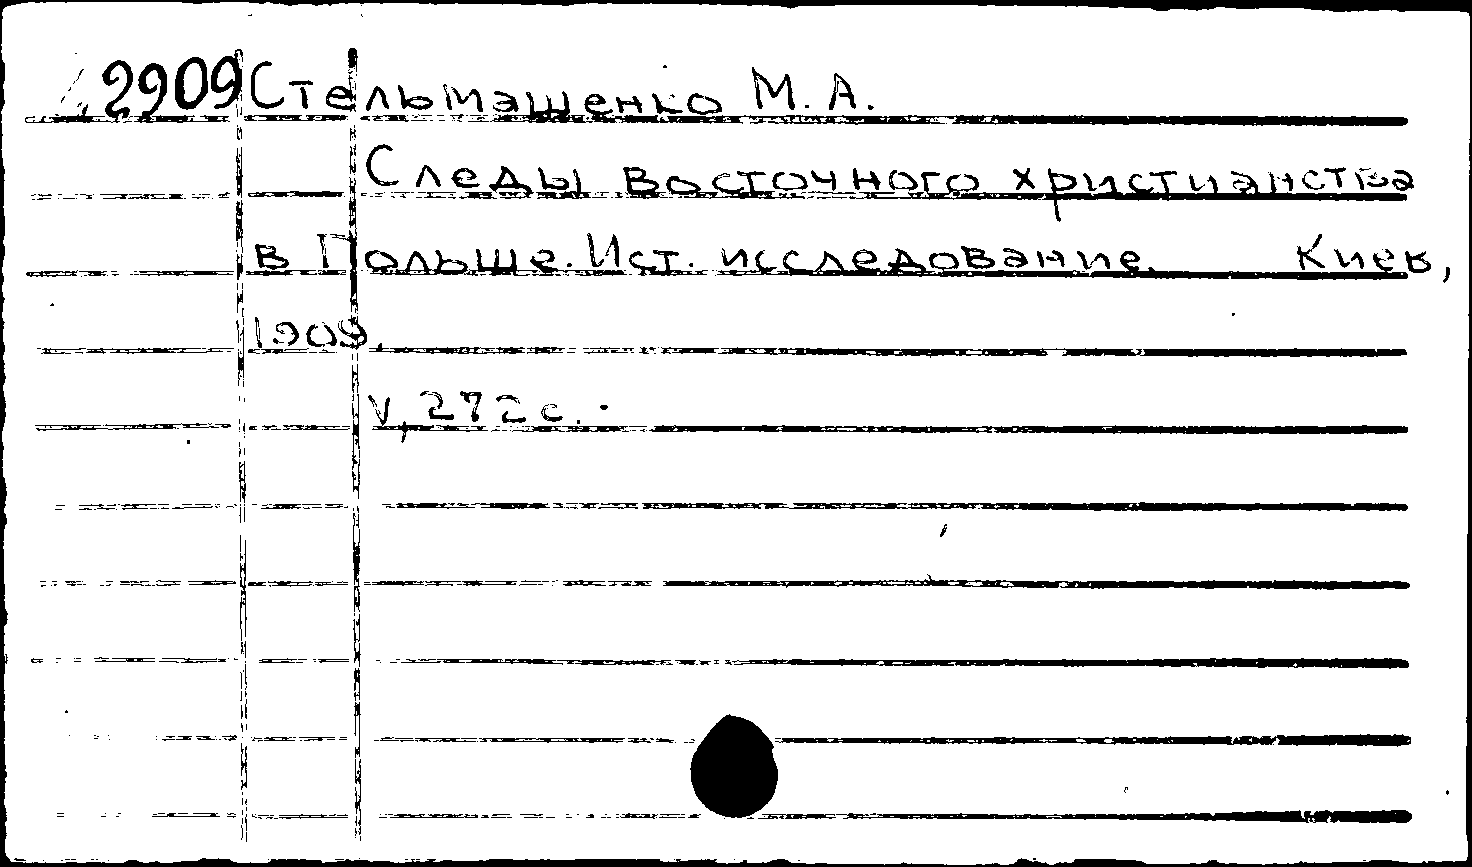 2909 Стельмашенко М. А.
Следы восточного христианства
в Польше. Ист. исследование. Киев,
1909.
V, 272 с.